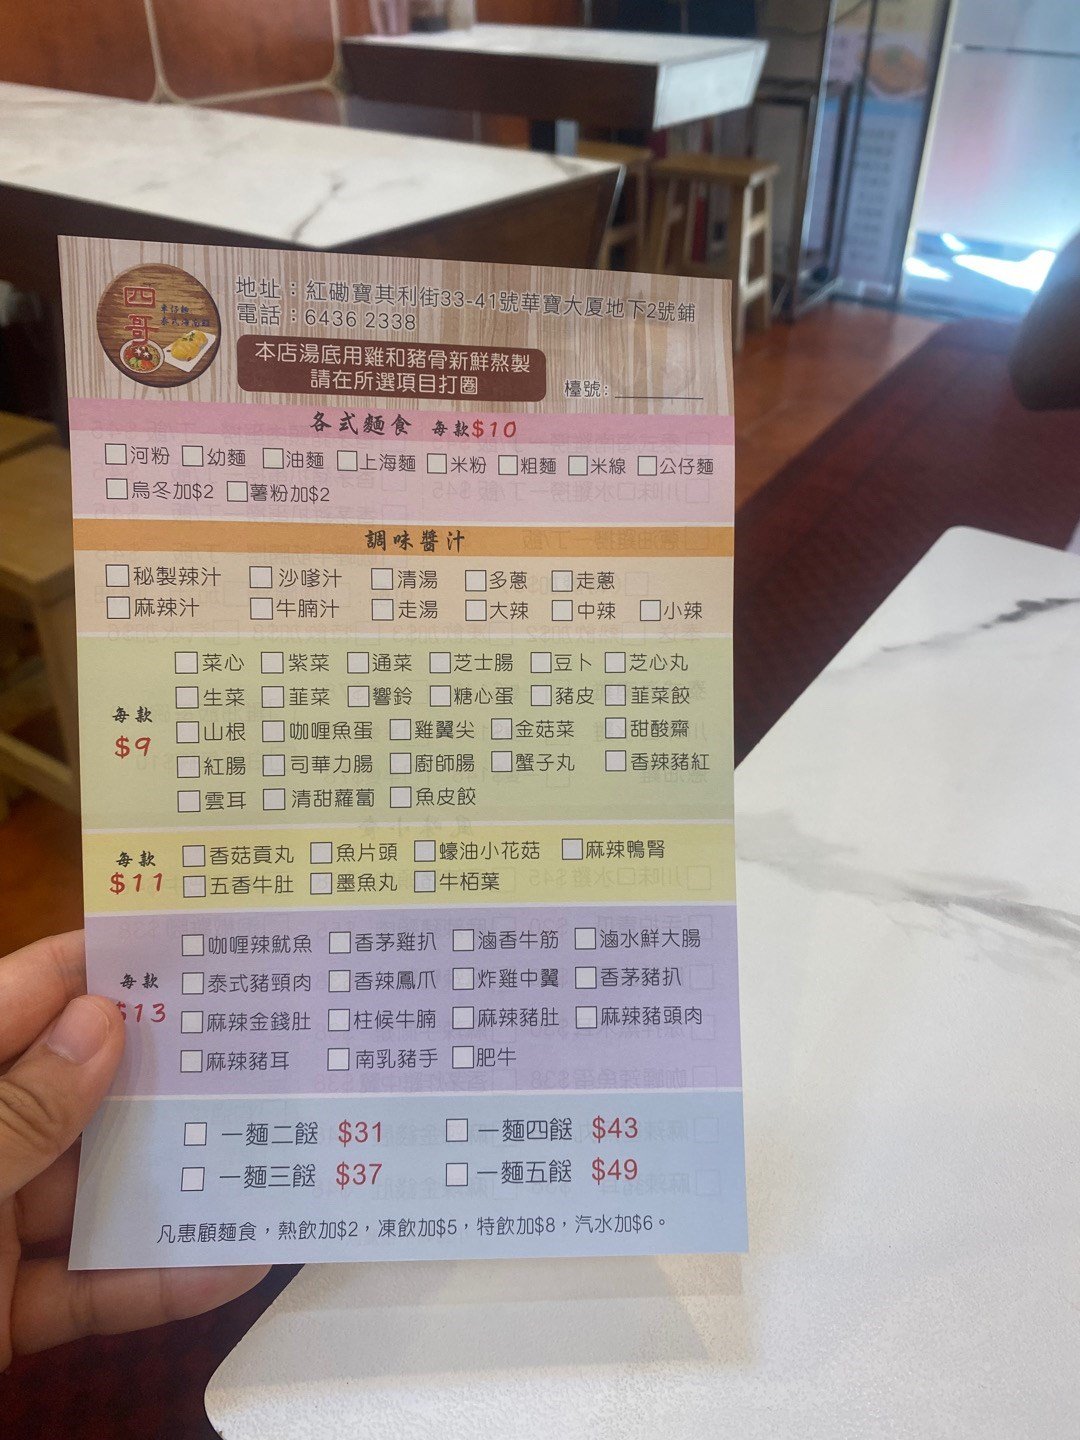 四哥
車仔麵
地址：紅磡寶其利街33-41號華寶大厦地下2號鋪
電話：6436 2338
本店湯底用雞和豬骨新鮮熬製
請在所選項目打圈
檯號:
各式麵食 每款$10
河粉 幼麵 油麵 上海麵 米粉 粗麵 米線 公仔麵
烏冬加$2 薯粉加$2
調味醬汁
秘製辣汁 沙嗲汁 清湯 多蔥 走蔥
麻辣汁 牛腩汁 走湯 大辣 中辣 小辣
每款
$9
菜心 紫菜 通菜 芝士腸 豆卜 芝心丸
生菜 韮菜 響鈴 糖心蛋 豬皮 韮菜餃
山根 咖喱魚蛋 雞翼尖 金菇菜 甜酸齋
紅腸 司華力腸 廚師腸 蟹子丸 香辣豬紅
雲耳 清甜蘿蔔 魚皮餃
每款
$11
香菇貢丸 魚片頭 蠔油小花菇 麻辣鴨腎
五香牛肚 墨魚丸 牛栢葉
每款
$13
咖喱辣魷魚 香茅雞扒 滷香牛筋 滷水鮮大腸
泰式豬頸肉 香辣鳳爪 炸雞中翼 香茅豬扒
麻辣金錢肚 柱候牛腩 麻辣豬肚 麻辣豬頭肉
麻辣豬耳 南乳豬手 肥牛
一麵二餸 $31 一麵四餸 $43
一麵三餸 $37 一麵五餸 $49
凡惠顧麵食，熱飲加$2，凍飲加$5，特飲加$8，汽水加$6。